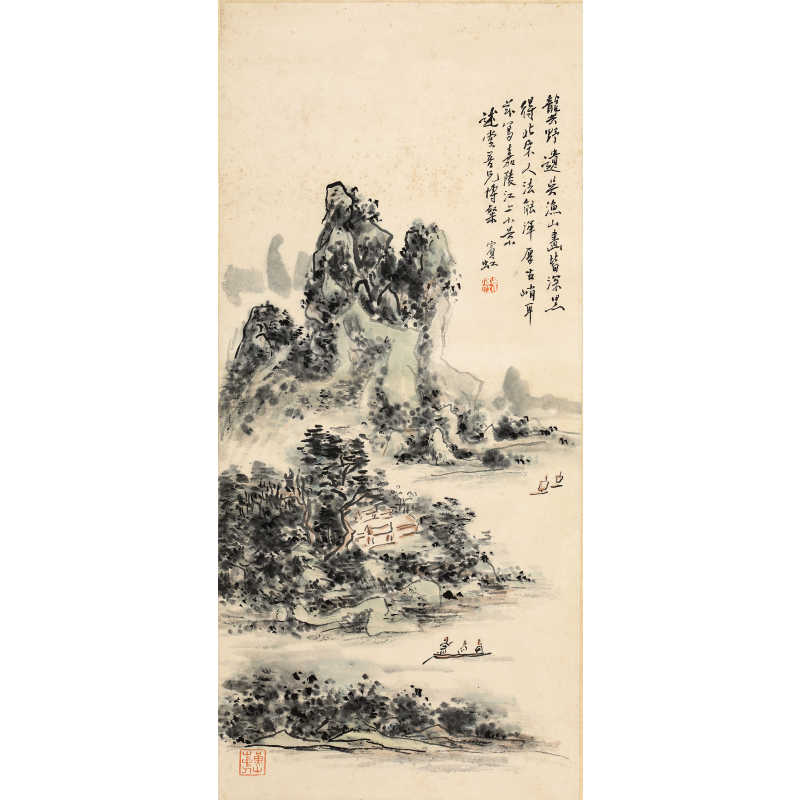 龔埜遺吳漁山畫皆深黑
得北宋人法能渾厚古峭耳
茲寫嘉陵江上小景
述雲吾兄博粲 賓虹